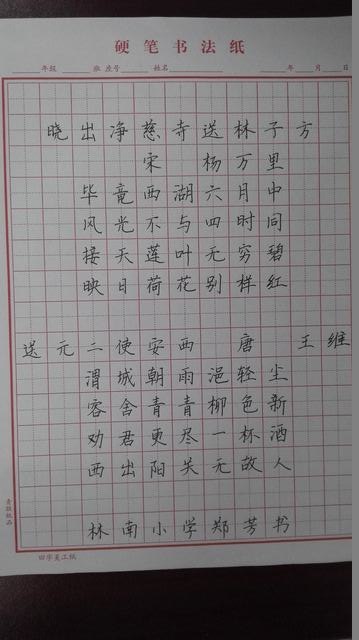 硬笔书法纸
年级 班 座号 姓名 年 月 日
晓出净慈寺送林子方
宋 杨万里
毕竟西湖六月中
风光不与四时同
接天莲叶无穷碧
映日荷花别样红
送元二使安西 唐 王维
渭城朝雨浥轻尘
客舍青青柳色新
劝君更尽一杯酒
西出阳关无故人
林南小学郑芳书
田字美工纸